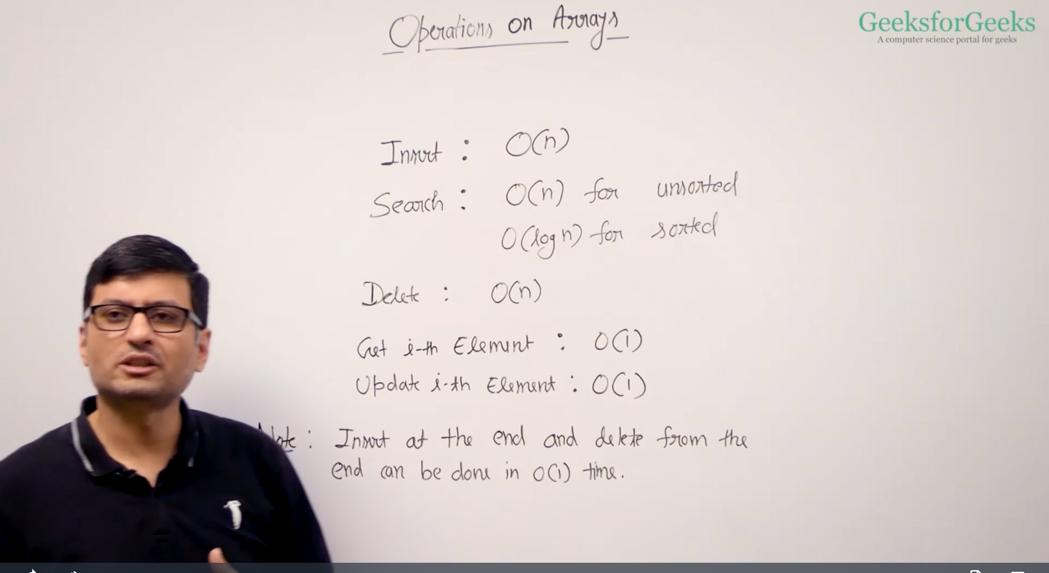 Operations on Arrays
GeeksforGeeks
A computer science portal for geeks
Insert : O(n)
Search : O(n) for unsorted
O(log n) for sorted
Delete : O(n)
Get i-th Element : O(1)
Update i-th Element : O(1)
Note : Insert at the end and delete from the
end can be done in O(1) time.